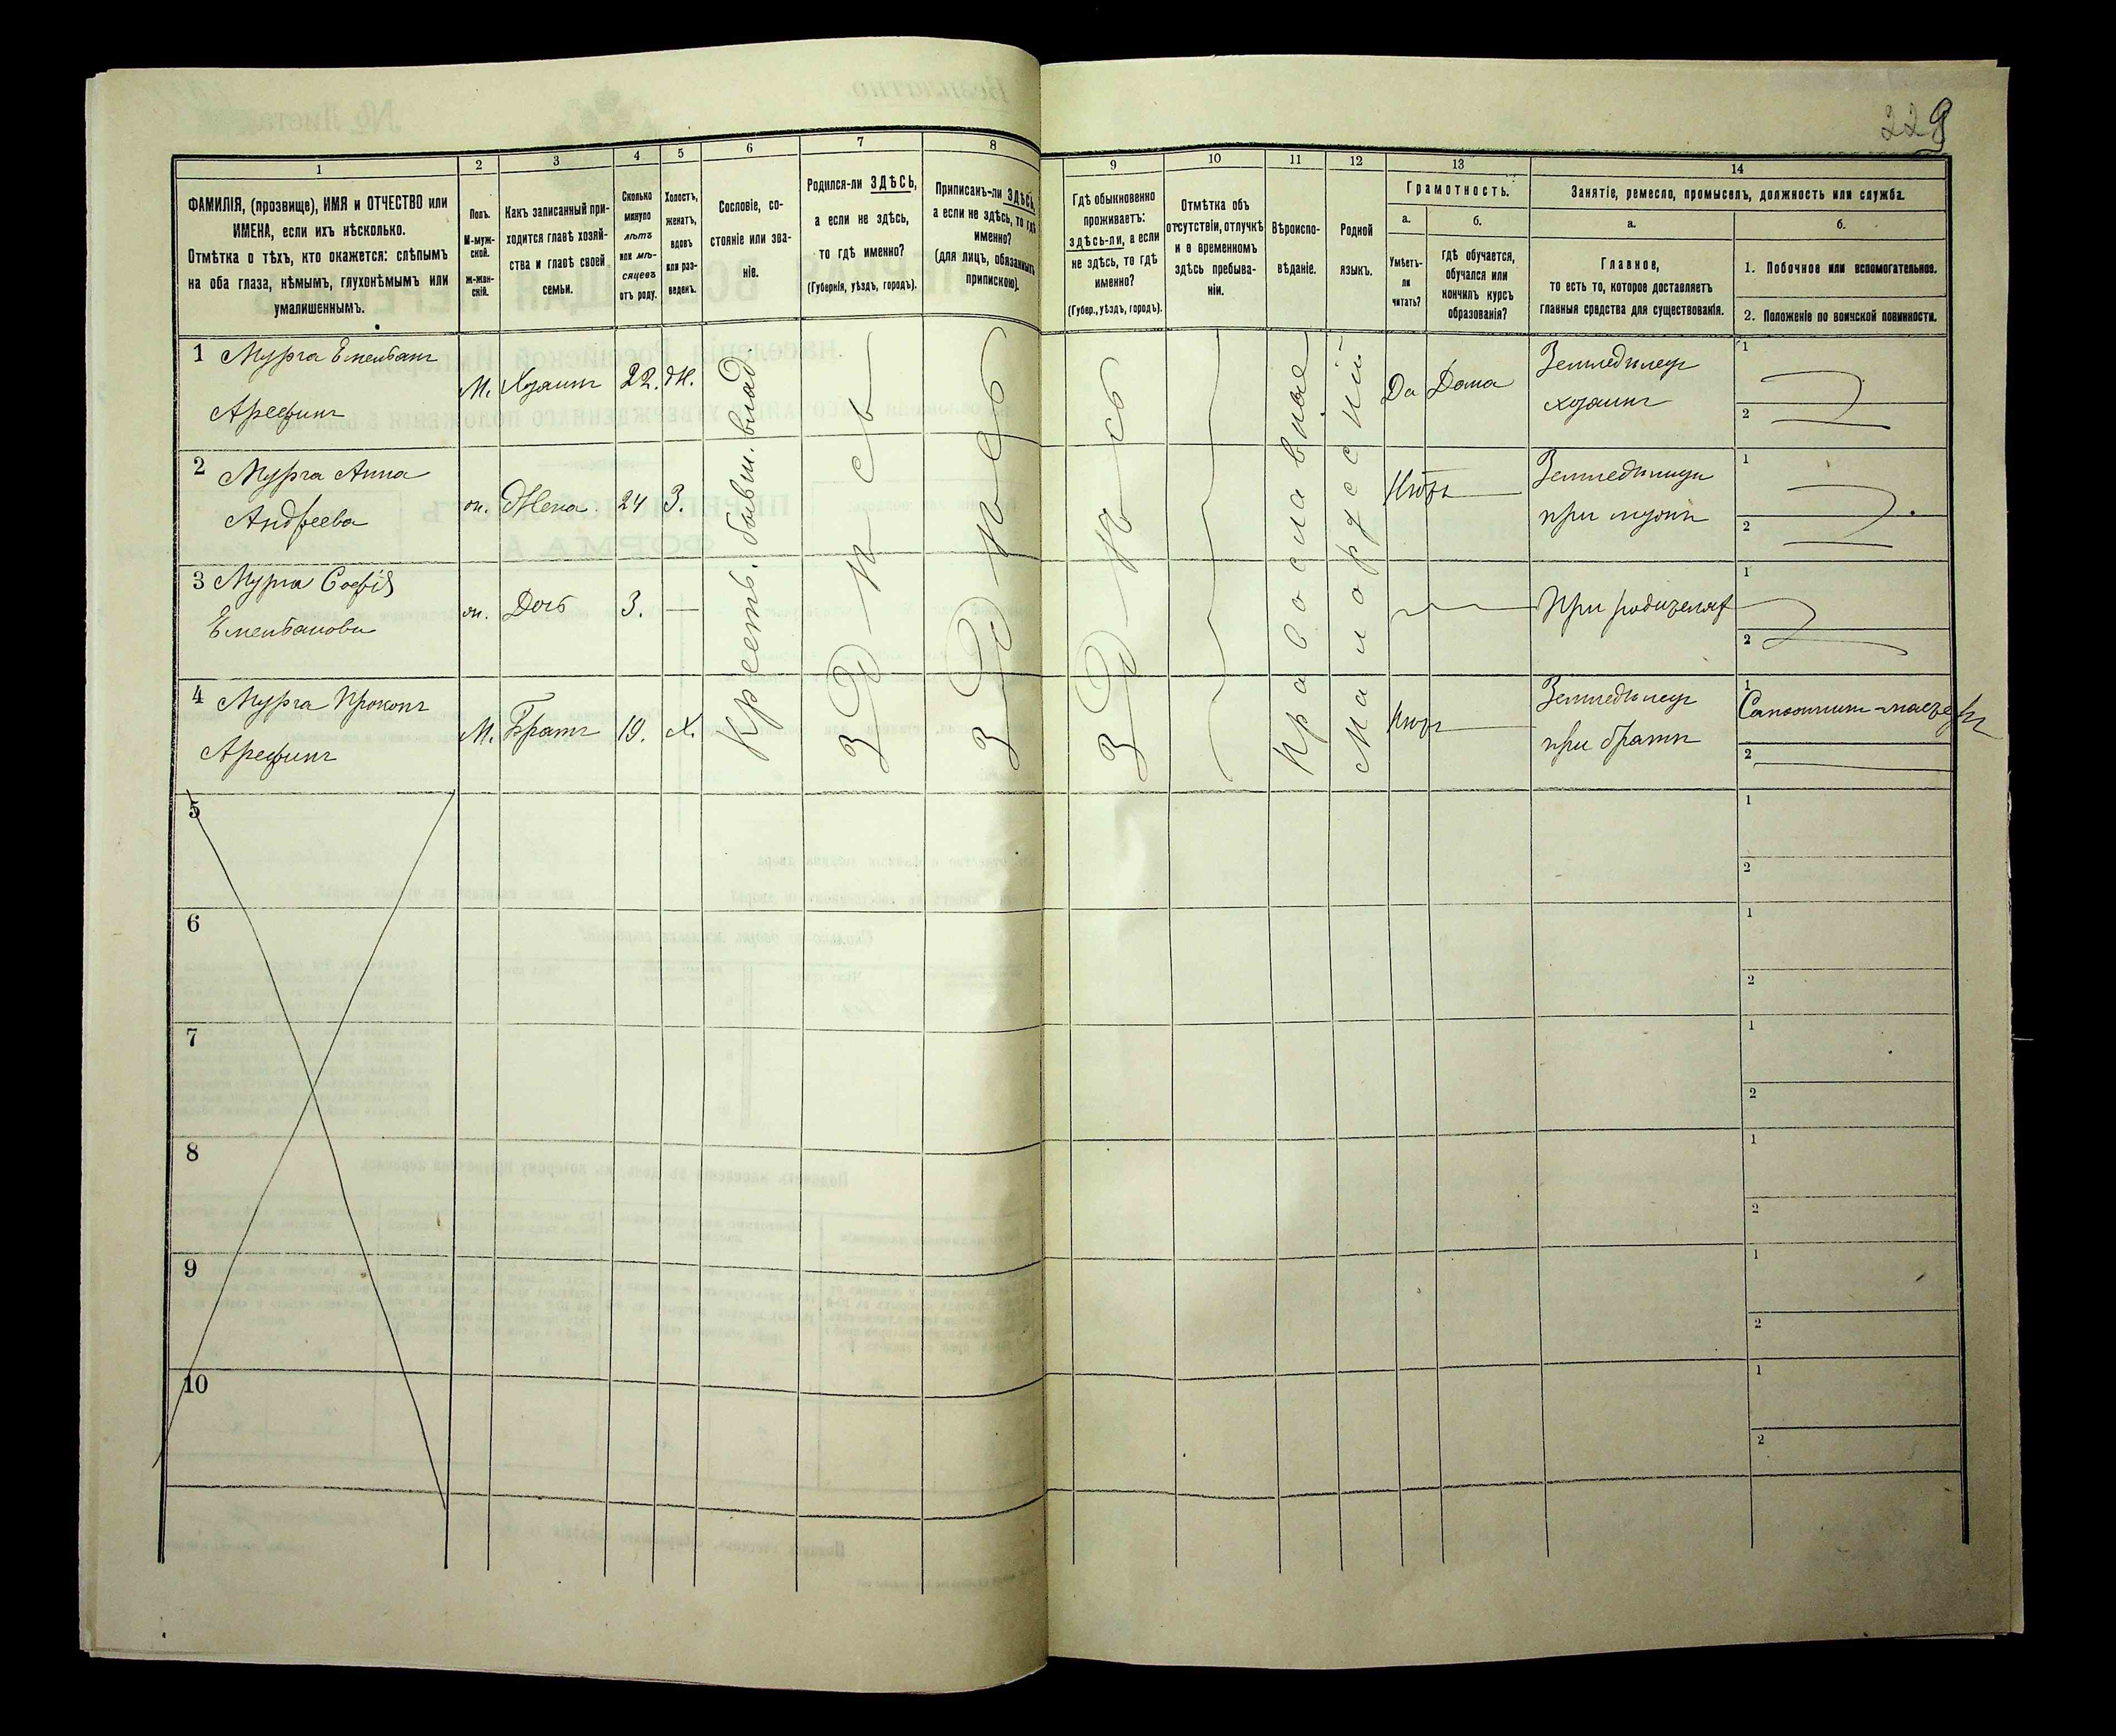 229
1
2
3
4
5
6
7
8
9
10
11
12
13
14
ФАМИЛІЯ, (прозвище), ИМЯ и ОТЧЕСТВО или
ИМЕНА, если ихъ нѣсколько.
Отмѣтка о тѣхъ, кто окажется: слѣпымъ
на оба глаза, нѣмымъ, глухонѣмымъ или
умалишеннымъ.
Полъ.
М-муж-
ской.
Ж-жен-
скій.
Какъ записанный при-
ходится главѣ хозяй-
ства и главѣ своей
семьи.
Сколько
минуло
лѣтъ
или мѣ-
сяцевъ
отъ роду.
Холостъ,
женатъ,
вдовъ
или раз-
веденъ.
Сословіе, со-
стояніе или зва-
ніе.
Родился-ли ЗДѢСЬ,
а если не здѣсь,
то гдѣ именно?
(Губернія, уѣздъ, городъ).
Приписанъ-ли ЗДѢСЬ,
а если не здѣсь, то гдѣ
именно?
(для лицъ, обязанныхъ
припискою).
Гдѣ обыкновенно
проживаетъ:
здѣсь-ли, а если
не здѣсь, то гдѣ
именно?
(Губер., уѣздъ, городъ).
Отмѣтка объ
отсутствіи, отлучкѣ
и о временномъ
здѣсь пребыва-
ніи.
Вѣроиспо-
вѣданіе.
Родной
языкъ.
Грамотность.
а.
Умѣетъ-
ли
читать?
б.
гдѣ обучается,
обучался или
кончилъ курсъ
образованія?
Занятіе, ремесло, промыселъ, должность или служба.
а.
Главное,
то есть то, которое доставляетъ
главныя средства для существованія.
б.
1. Побочное или вспомогательное.
2. Положеніе по воинской повинности.
1 Мурга Емельянъ
Арефинъ
М. Хозяинъ 22. Ж.
Да Дома
Земледѣлецъ
хозяинъ
1
2
2 Мурга Анна
Андреева
ж. Жена. 24 З.
Нѣтъ
при мужѣ
1
2
3 Мурга Софія
Емельянова
ж. Дочь 3. —
При родителяхъ
1
2
4 Мурга Прокопъ
Арефинъ
М. Братъ 19. Х.
Нѣтъ
Земледѣлецъ
при братѣ
1
2
Крестъ. бывш. влад.
Здѣсь
Здѣсь
Здѣсь
Православное
Малорусскій
5
1
2
6
1
2
7
1
2
8
1
2
9
1
2
10
1
2